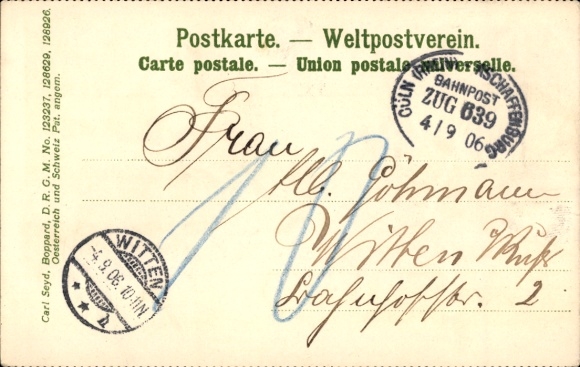 Postkarte. — Weltpostverein.
Carte postale. — Union postale universelle.
Carl Seyd, Boppard, D. R. G. M. No. 123237, 128629, 128926.
Oesterreich und Schweiz Pat. angem.
CÖLN (RHEIN) ASCHAFFENBURG
BAHNPOST
ZUG 639
4/9 06
Frau
Göhmann
Witten Ruhr
Bahnhofstr. 2
10
WITTEN
4.9.06.